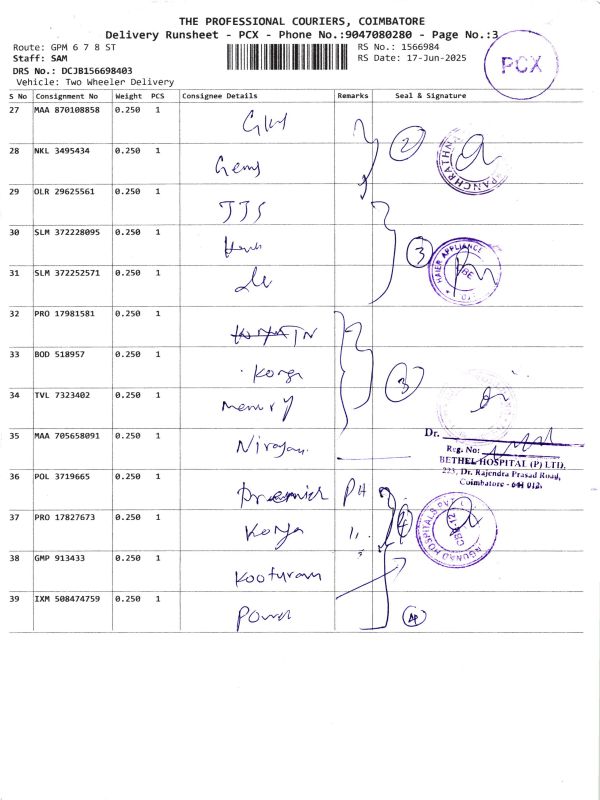 THE PROFESSIONAL COURIERS, COIMBATORE
Delivery Runsheet - PCX - Phone No.:9047080280 - Page No.:3
Route: GPM 6 7 8 ST
RS No.: 1566984
Staff: SAM
RS Date: 17-Jun-2025
DRS No.: DCJB156698403
Vehicle: Two Wheeler Delivery
PCX
S No Consignment No Weight PCS Consignee Details Remarks Seal & Signature
27 MAA 870108858 0.250 1
28 NKL 3495434 0.250 1 Gems
2
29 OLR 29625561 0.250 1 JJS
30 SLM 372228095 0.250 1
3 HAIER APPLIANCE
31 SLM 372252571 0.250 1
32 PRO 17981581 0.250 1
33 BOD 518957 0.250 1 Korga
3
34 TVL 7323402 0.250 1 Memory
35 MAA 705658091 0.250 1 Nirayan
Dr.
Reg. No:
BETHEL HOSPITAL (P) LTD.
223, Dr. Rajendra Prasad Road,
Coimbatore - 641 012.
36 POL 3719665 0.250 1 Premier PH
37 PRO 17827673 0.250 1 Korga 4
38 GMP 913433 0.250 1
39 IXM 508474759 0.250 1 Power